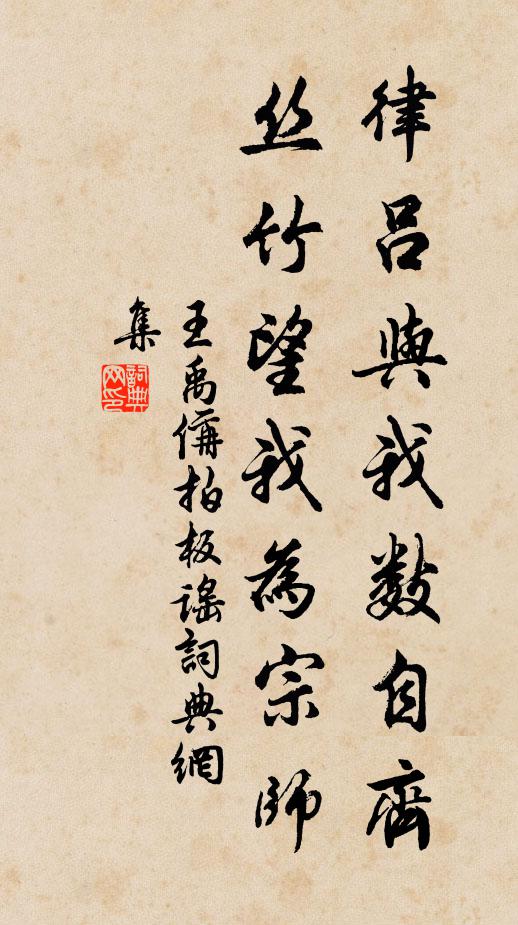 律吕與我數自齊
丝竹望我為宗師
王禹偁拍板謠詞典網
集
詞典
网印